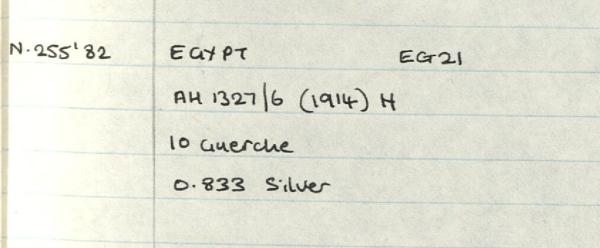 N.255'82 EGYPT EG21
AH 1327/6 (1914) H
10 Guerche
0.833 Silver